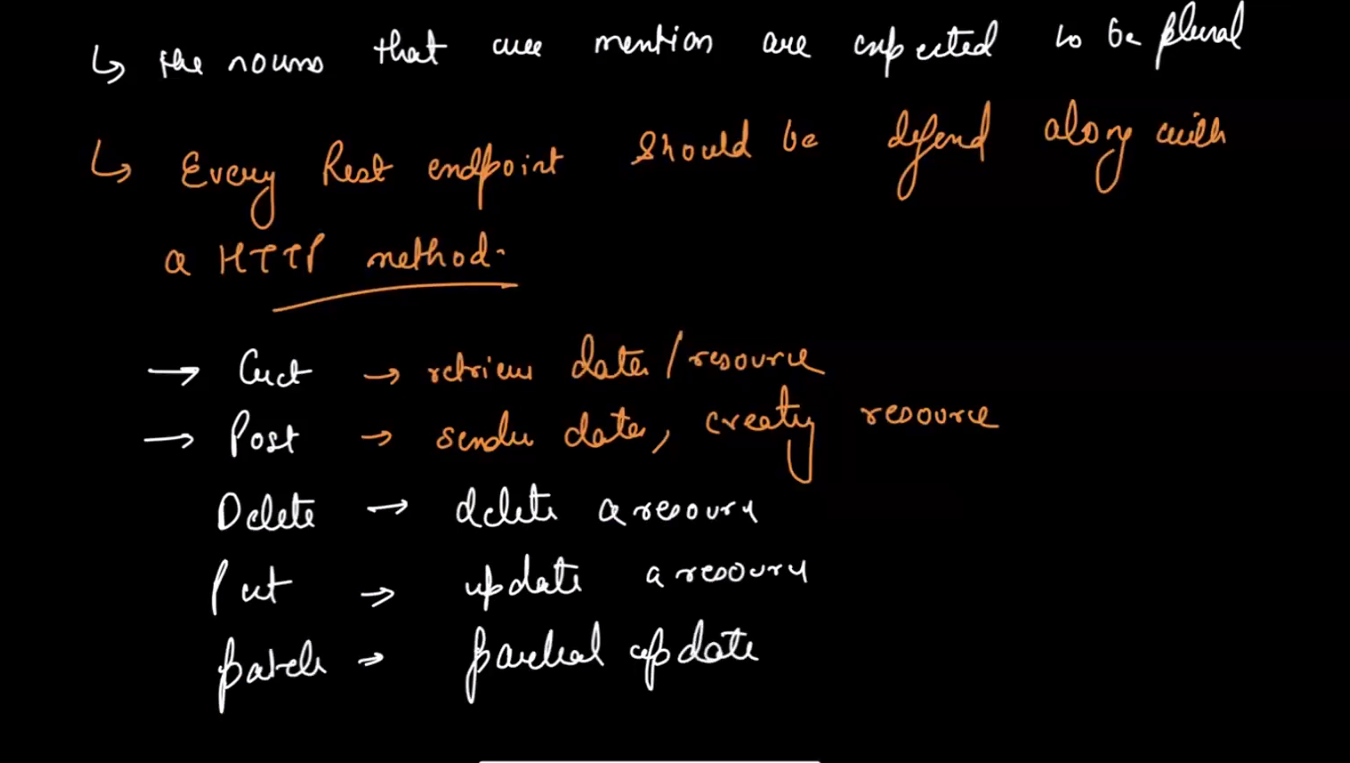 ↳ the nouns that are mention are expected to be plural
↳ Every Rest endpoint should be defined along with
a HTTP method.
→ Get → retrieve data/resource
→ Post → sender data, creating resource
Delete → delete a resource
Put → update a resource
patch → partial update